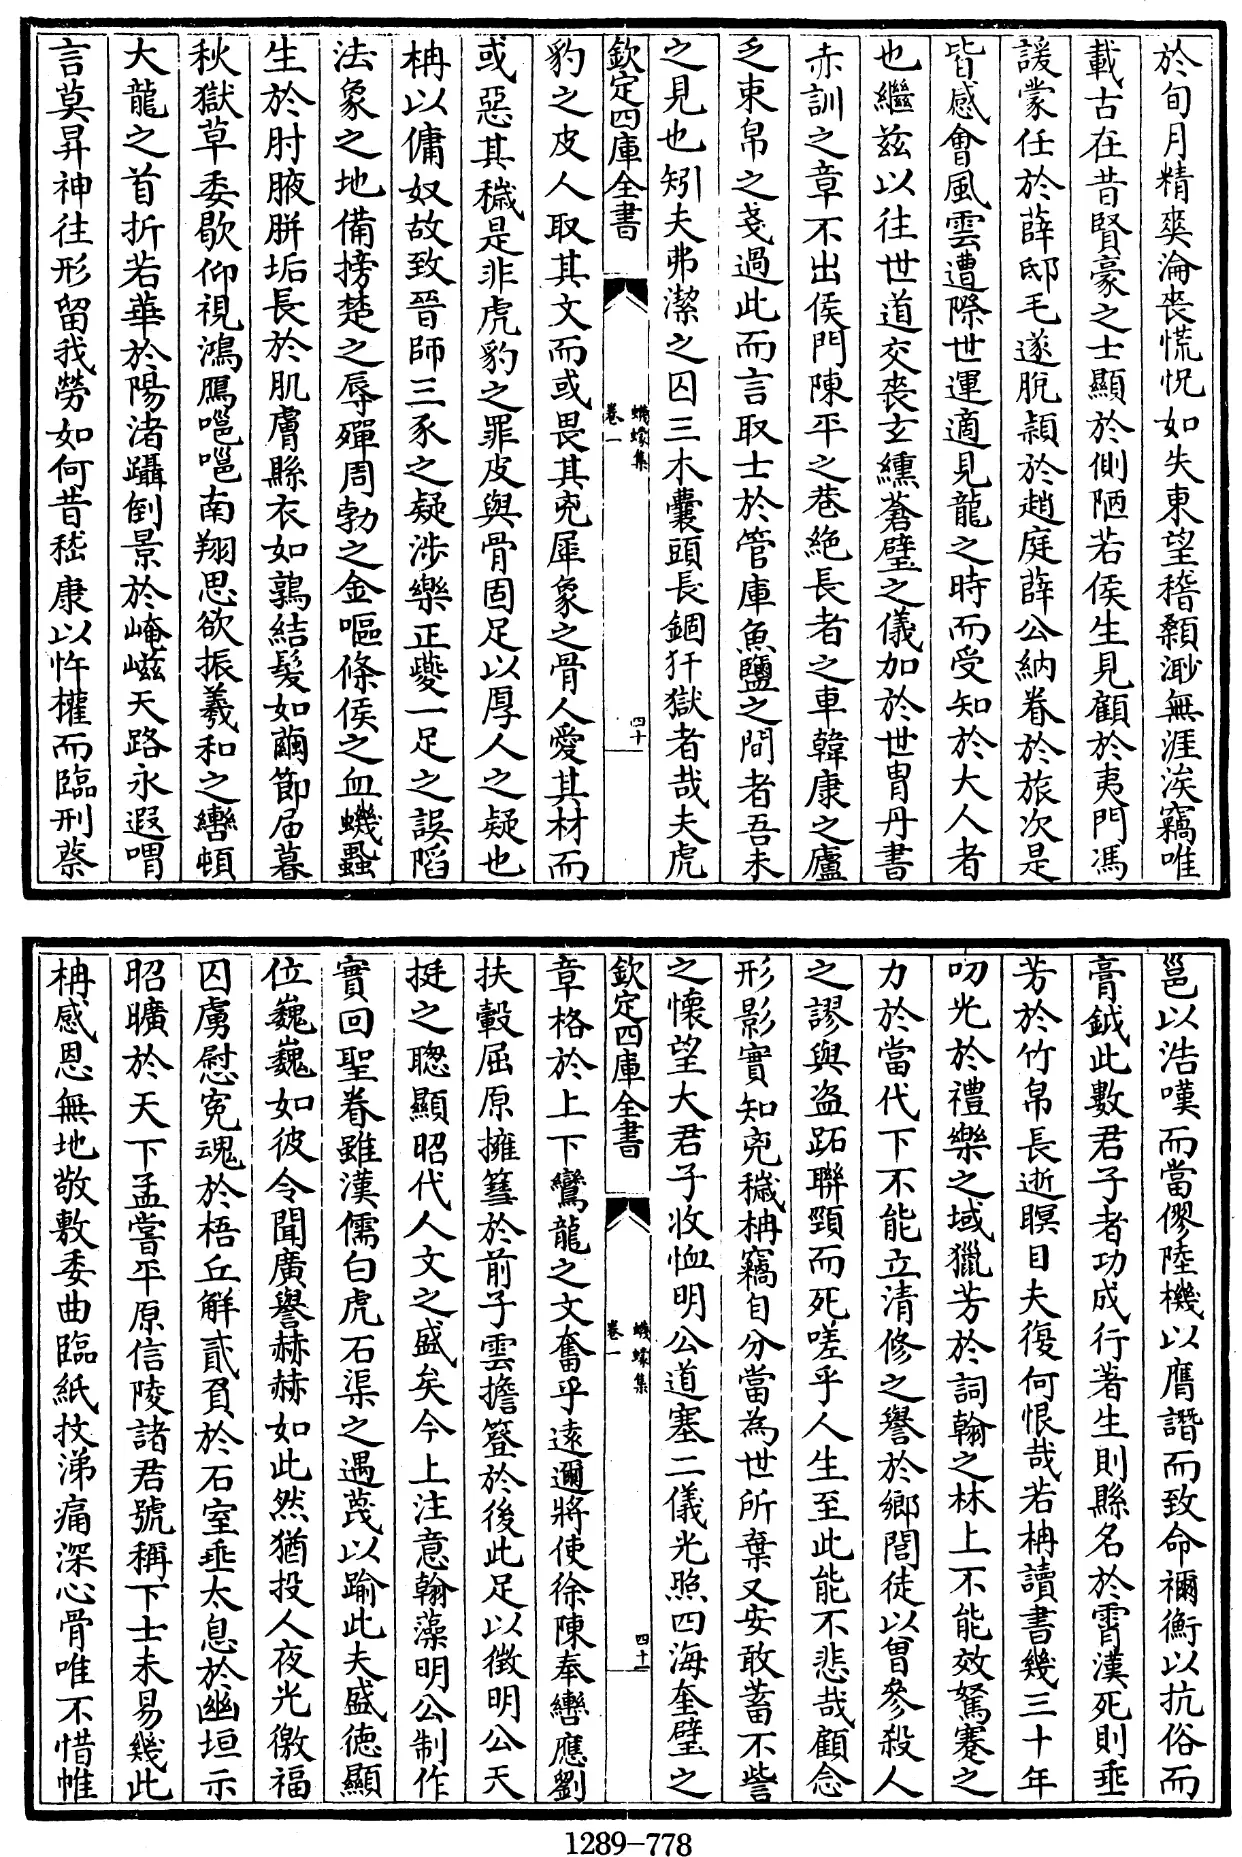 於旬月精爽淪喪慌怳如失東望稽顙渺無涯涘竊唯
載古在昔賢豪之士顯於側陋若侯生見顧於夷門馮
諼蒙任於薛邸毛遂脫穎於趙庭薛公納眷於旅次是
皆感會風雲遭際世運適見龍之時而受知於大人者
也繼兹以往世道交喪玄纁蒼璧之儀加於世胄丹書
赤訓之章不出侯門陳平之巷絶長者之車韓康之廬
乏束帛之戔過此而言取士於管庫魚鹽之間者吾未
之見也矧夫弗潔之囚三木囊頭長錮犴獄者哉夫虎
欽定四庫全書
蠛蠓集
卷一
四十
豹之皮人取其文而或畏其兇犀象之骨人愛其材而
或惡其穢是非虎豹之罪皮與骨固足以厚人之疑也
柟以傭奴故致晉師三豕之疑涉樂正夔一足之誤䧟
法象之地備搒楚之辱殫周勃之金嘔條侯之血蟣蝨
生於肘腋胼垢長於肌膚縣衣如鶉結髮如繭節届暮
秋獄草委歇仰視鴻鴈嗈嗈南翔思欲振羲和之轡頓
大龍之首折若華於陽渚躡倒景於崦嵫天路永遐喟
言莫昇神往形留我勞如何昔嵇康以忤權而臨刑蔡
邕以浩嘆而當僇陸機以膺譖而致命禰衡以抗俗而
膏鉞此數君子者功成行著生則縣名於霄漢死則垂
芳於竹帛長逝瞑目夫復何恨哉若柟讀書幾三十年
叨光於禮樂之域獵芳於詞翰之林上不能效駑蹇之
力於當代下不能立清修之譽於鄉閭徒以曾參殺人
之謬與盜跖聯頸而死嗟乎人生至此能不悲哉顧念
形影實知兇穢柟竊自分當為世所棄又安敢蓄不訾
之懐望大君子收恤明公道塞二儀光照四海奎璧之
欽定四庫全書
蠛蠓集
卷一
四十一
章格於上下鸞龍之文奮乎遠邇將使徐陳奉轡應劉
扶轂屈原擁篲於前子雲擔簦於後此足以徴明公天
挺之聰顯昭代人文之盛矣今上注意翰藻明公制作
實回聖眷雖漢儒白虎石渠之遇蔑以踰此夫盛徳顯
位巍巍如彼令聞廣譽赫赫如此然猶投人夜光徼福
囚虜慰寃魂於梧丘解貳負於石室垂太息於幽垣示
昭曠於天下孟嘗平原信陵諸君號稱下士未易幾此
柟感恩無地敬敷委曲臨紙抆涕痛深心骨唯不惜帷
1289-778